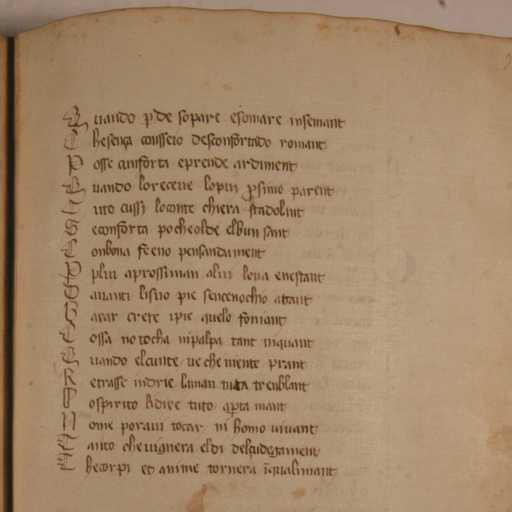 Quando p de sopare esomare insemant
C hesença conseio desconfortado romant
P osse conforta eprende ardiment
Q uando loreceue lopiu prosimo parent
T uto cussi loconte chiera stadolant
S econforta pocheolde elbun sant
C onbona fe eno pensandament
P plui aprossiman alui loua enestant
D auanti lisuo pie sencenochio atant
G uardar crete ipie quelo foniant
C ossa no tocha nipalpa tant niquant
Q uando elcunte ue che niente prant
R etrasse indrie laman tuta treblant
S ospirito lidixe tuto qpta mant
N ome poraui tocar ni homo uiuant
T anto che uignera eldi delçudegament
C hecorpi et anime tornera igualimant